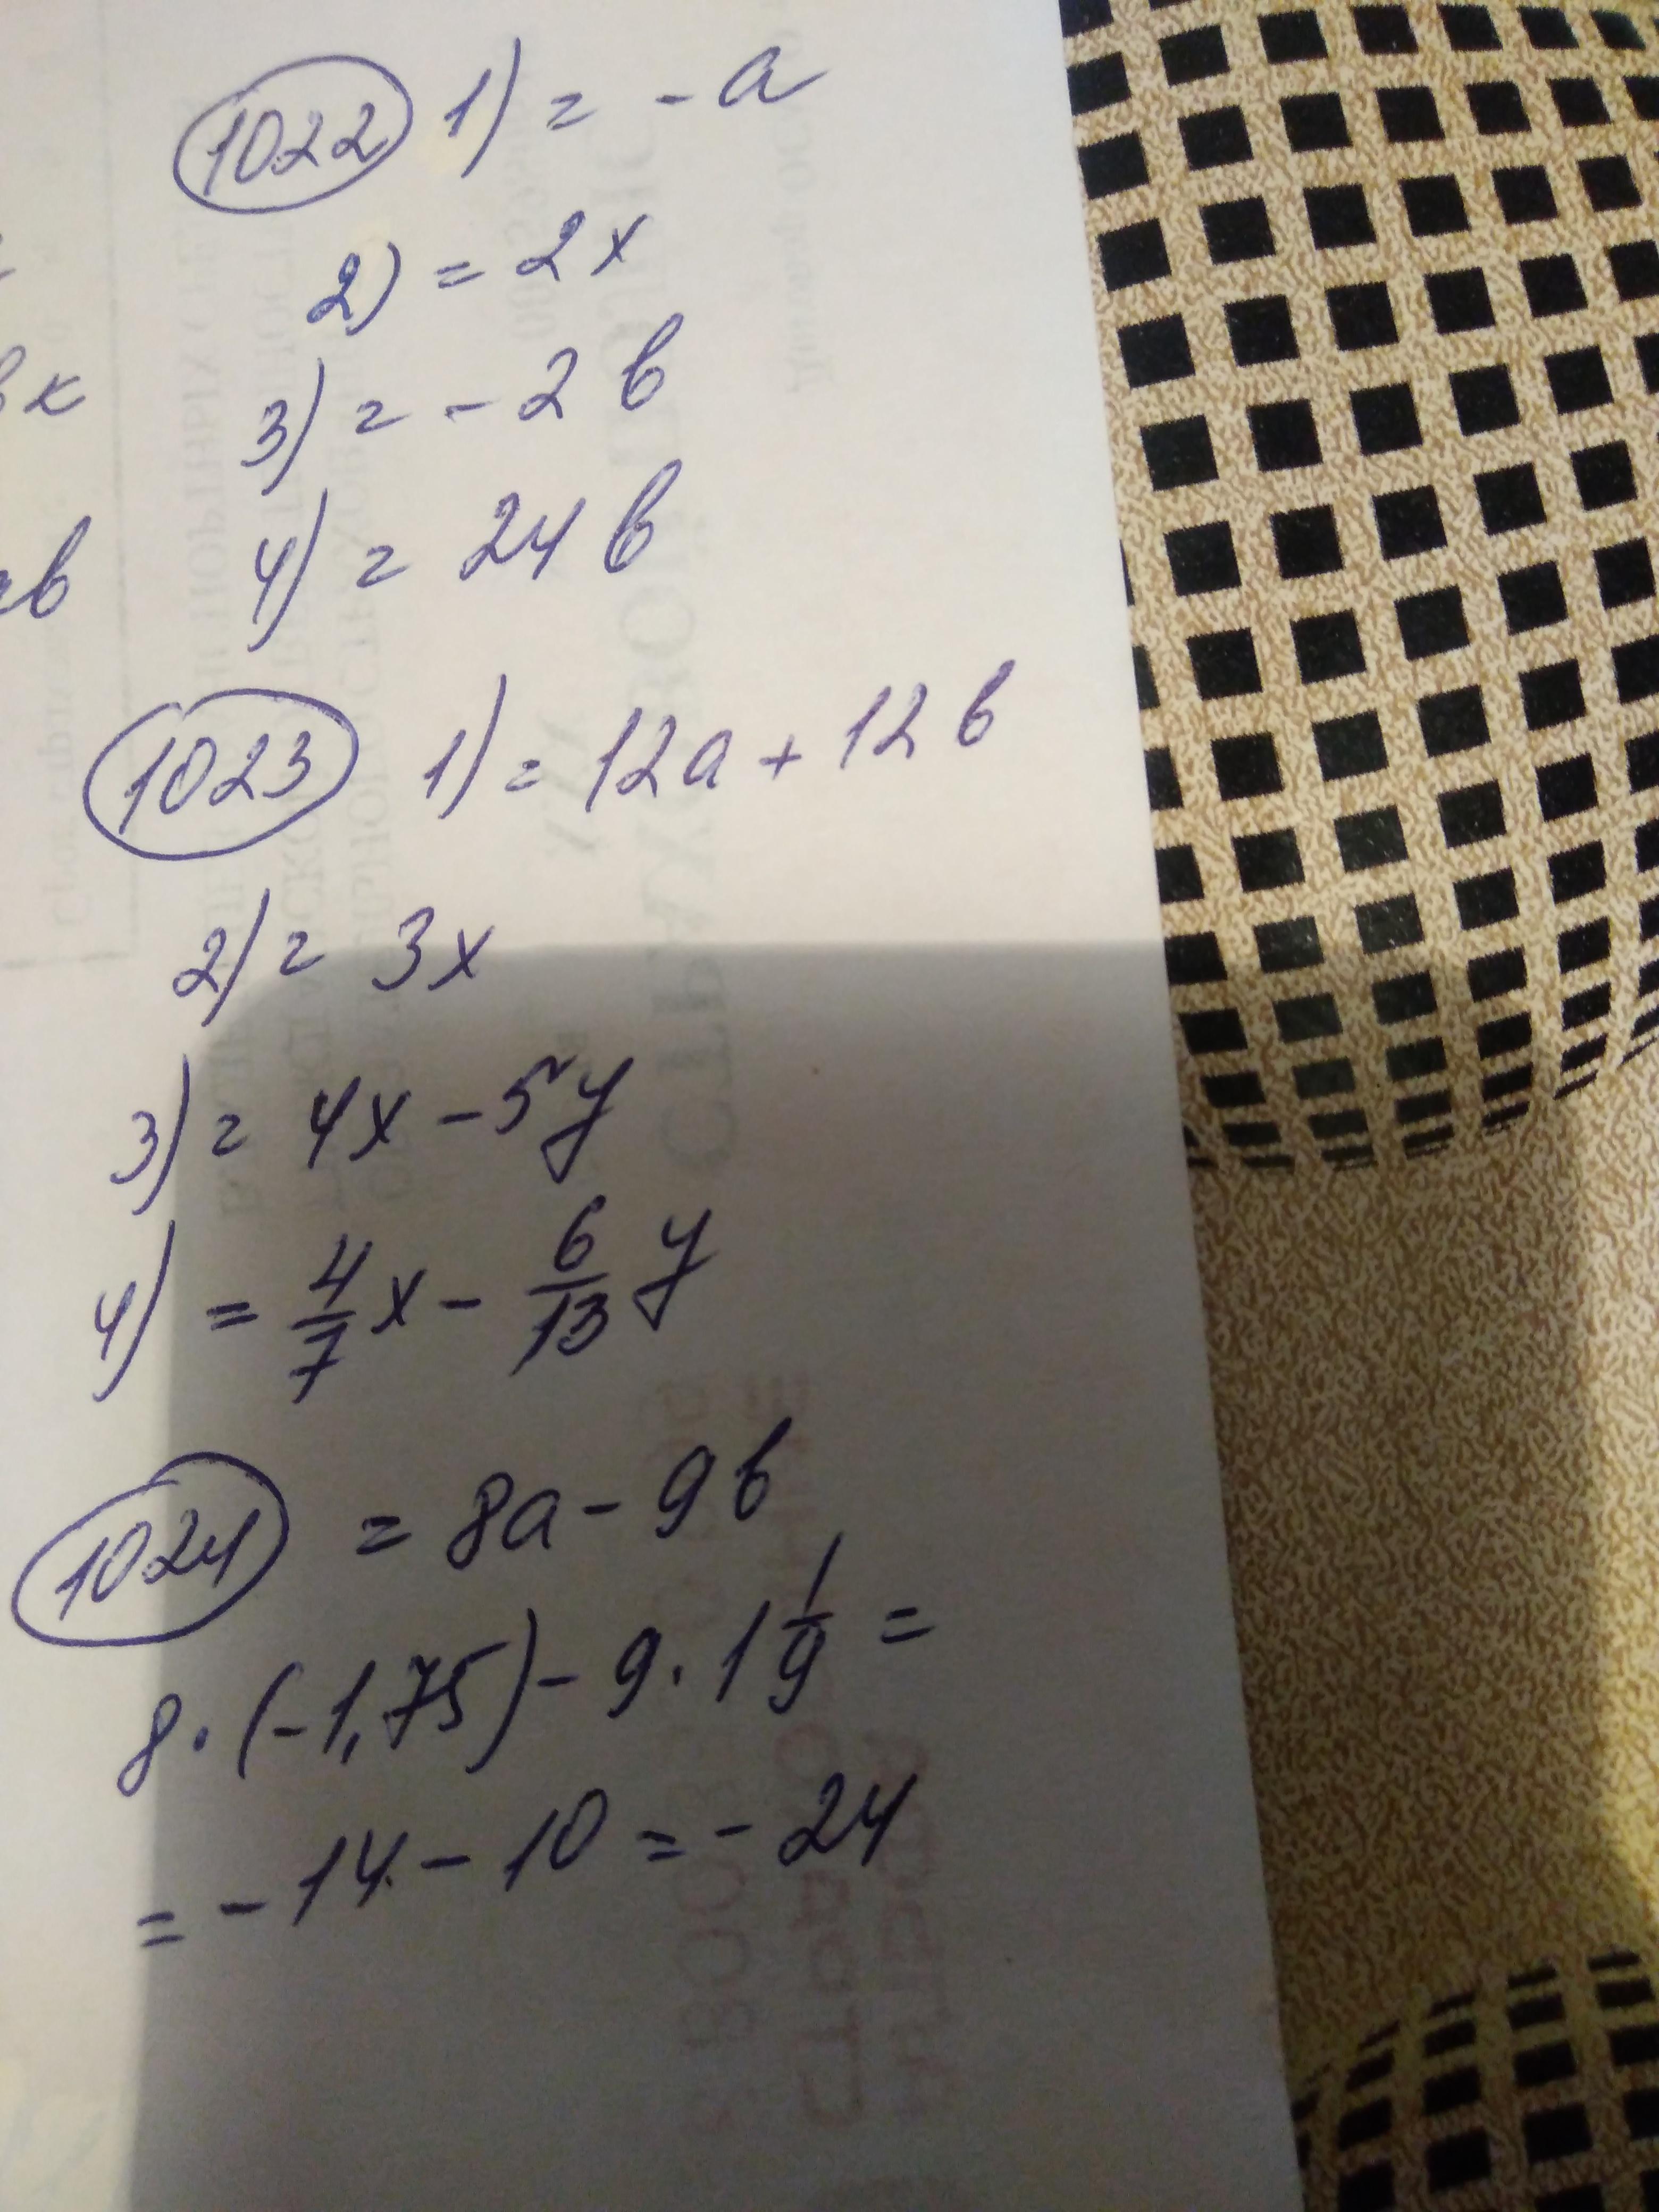 1022 1) = - a
2) = 2x
вx
3) = - 2в
4) = 24в
в
1023 1) = 12a + 12в
2) = 3x
3) = 4x - 5y
4) = 4/7 x - 6/13 y
1024 = 8a - 9в
8 · (-1,75) - 9 · 1 1/9 =
= - 14 - 10 = - 24